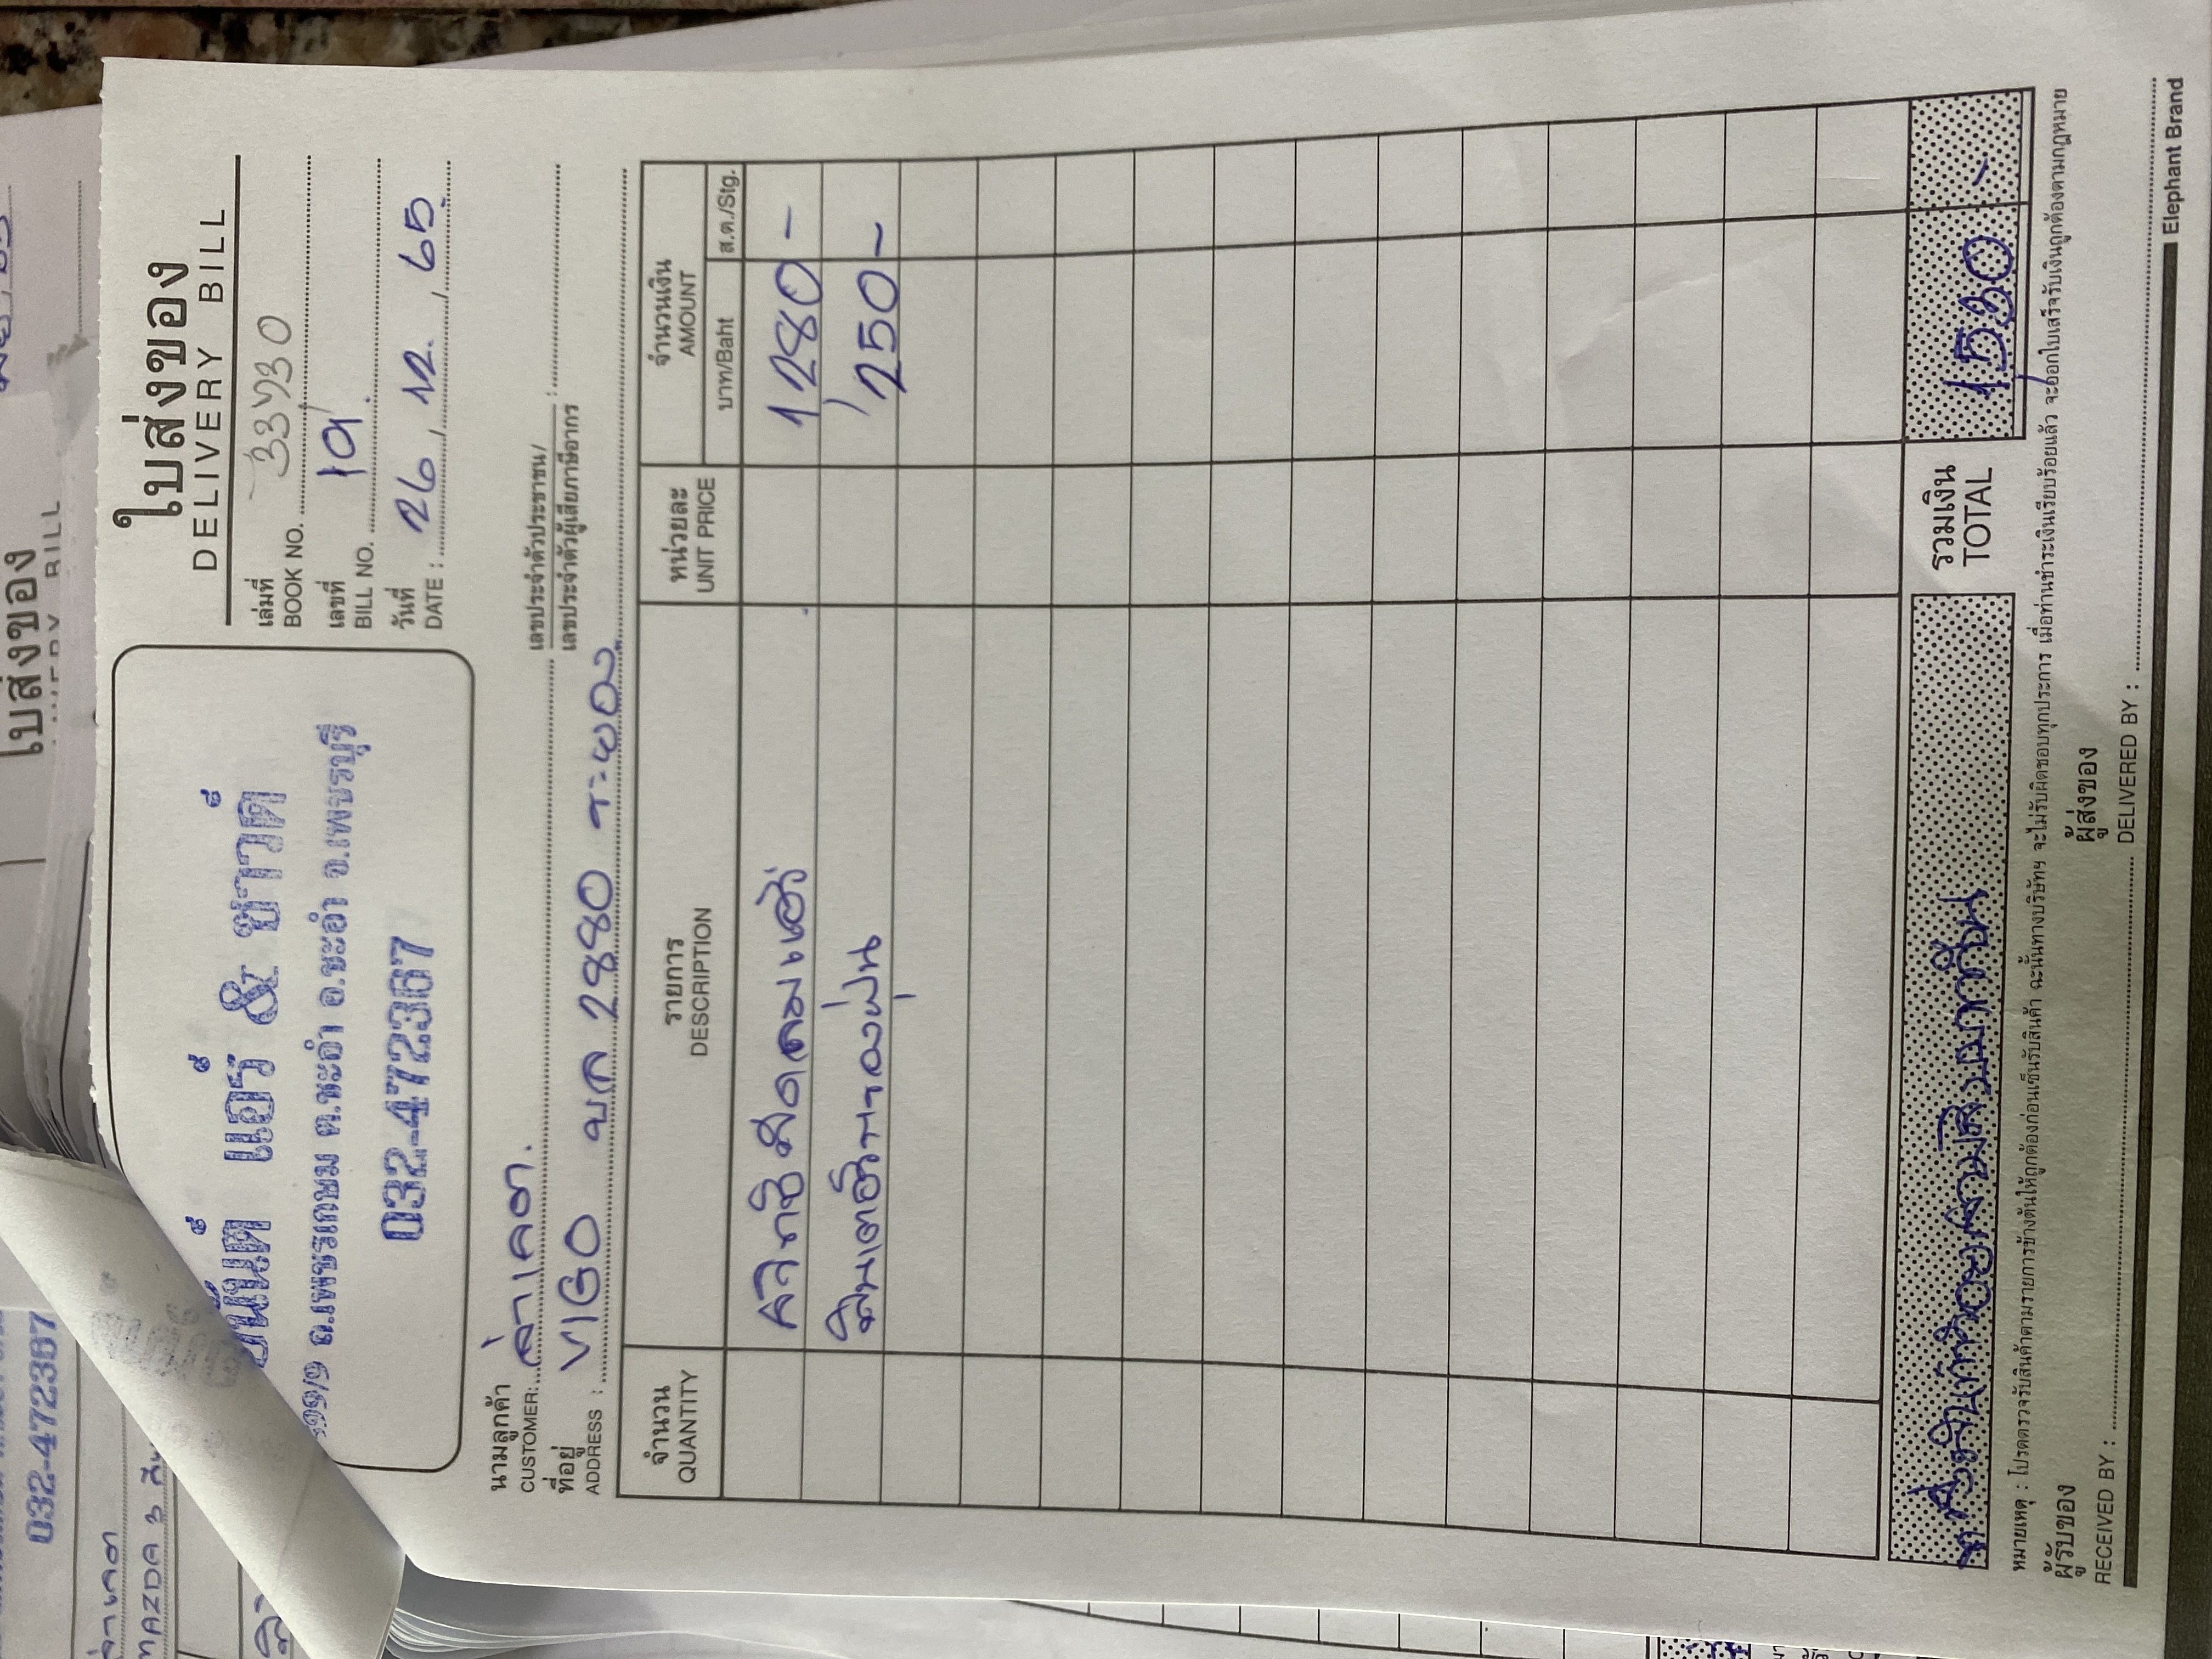 ใบส่งของ
DELIVERY BILL
แอร์ & ซาวด์
ถ.เพชรเกษม ต.ชะอำ อ.ชะอำ จ.เพชรบุรี
032-472387
เล่มที่
BOOK NO.
เลขที่
BILL NO. 19
วันที่
DATE : 26 / 12 / 65
นามลูกค้า
CUSTOMER:
เลขประจำตัวประชาชน/
เลขประจำตัวผู้เสียภาษีอากร :
ที่อยู่
ADDRESS : VIGO บก 2980 ระยอง
จำนวน รายการ หน่วยละ จำนวนเงิน
QUANTITY DESCRIPTION UNIT PRICE AMOUNT
บาท/Baht ส.ต./Stg.
1280 -
250 -
รวมเงิน
TOTAL 1530 -
หนึ่งพันห้าร้อยสามสิบบาทถ้วน
หมายเหตุ : โปรดตรวจรับสินค้าตามรายการข้างต้นให้ถูกต้องก่อนเซ็นรับสินค้า ฉะนั้นทางบริษัทฯ จะไม่รับผิดชอบทุกประการ เมื่อท่านชำระเงินเรียบร้อยแล้ว จะออกใบเสร็จรับเงินถูกต้องตามกฎหมาย
ผู้รับของ ผู้ส่งของ
RECEIVED BY : DELIVERED BY :
Elephant Brand
ใบส่งของ
032-472387
MAZDA 3